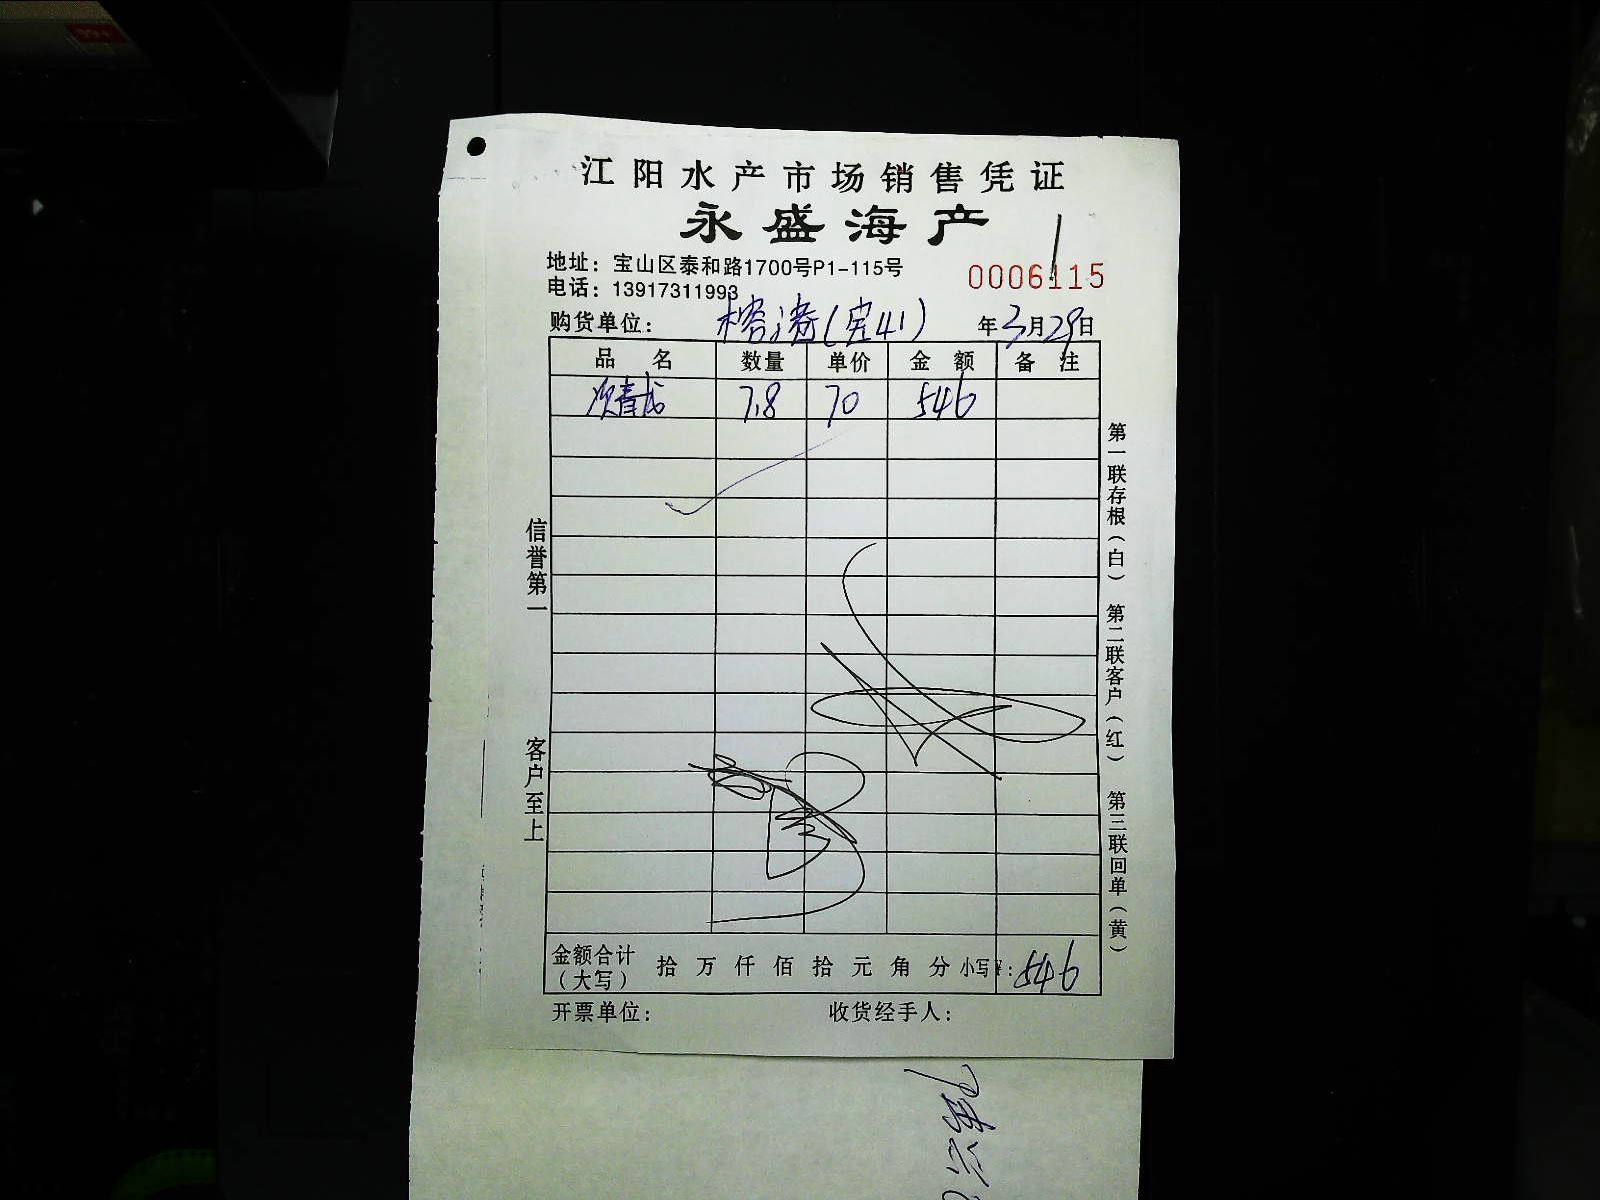 江阳水产市场销售凭证
永盛海产
地址：宝山区泰和路1700号P1-115号
0006115
电话：13917311993
购货单位：榕港(宝41) 年3月29日
品名 数量 单价 金额 备注
次青龙 7.8 70 546
信誉第一 客户至上
第一联存根（白） 第二联客户（红） 第三联回单（黄）
金额合计（大写） 拾万仟佰拾元角分 小写¥：546
开票单位： 收货经手人：